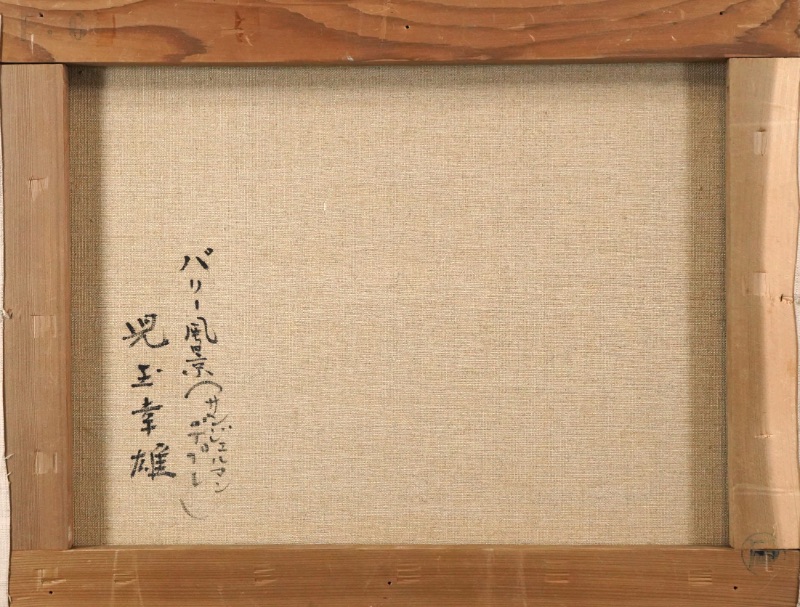 パリー風景(サンジェルマン
デプレ)
児玉幸雄